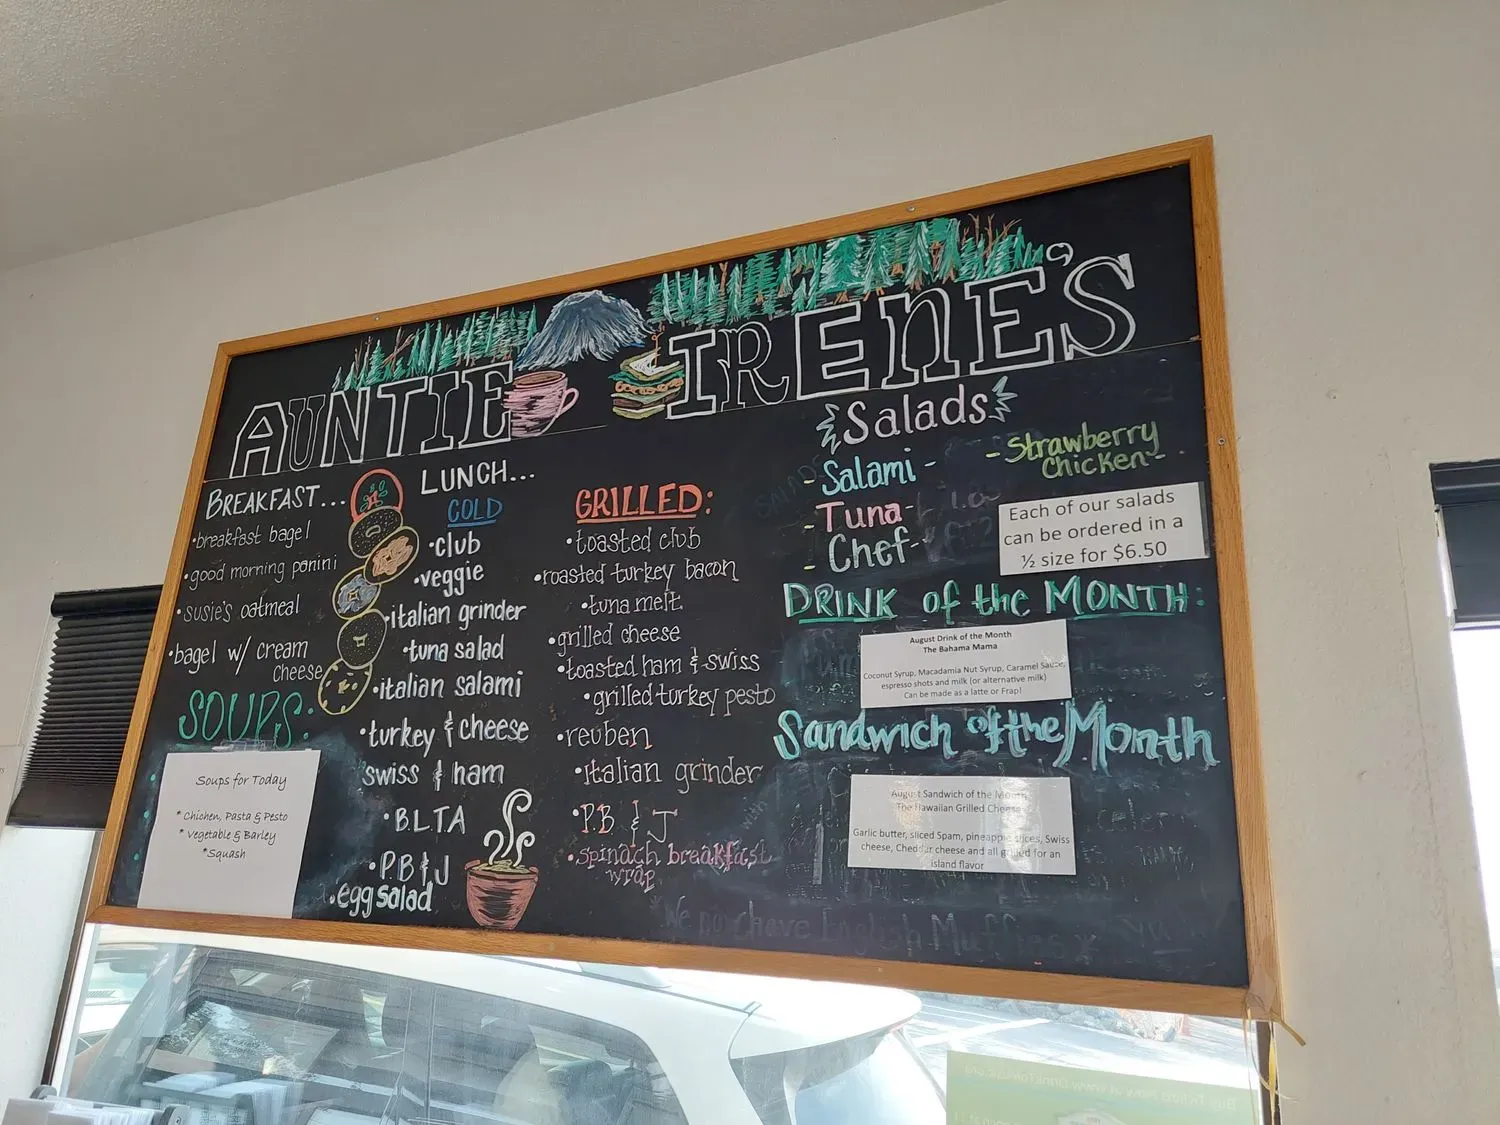 AUNTIE IRENE'S
BREAKFAST...
•breakfast bagel
•good morning panini
•susie's oatmeal
•bagel w/ cream
cheese
SOUPS:
Soups for Today
* Chicken, Pasta & Pesto
* Vegetable & Barley
*Squash
LUNCH...
COLD
•club
•veggie
•italian grinder
•tuna salad
•italian salami
•turkey & cheese
swiss & ham
•B.L.T.A
•P.B & J
•egg salad
GRILLED:
•toasted club
•roasted turkey bacon
•tuna melt
•grilled cheese
•toasted ham & swiss
•grilled turkey pesto
•reuben
•italian grinder
•P.B & J
•spinach breakfast
wrap
Salads
- Salami -
- Tuna -
- Chef -
- Strawberry
Chicken -
Each of our salads
can be ordered in a
½ size for $6.50
DRINK of the MONTH:
August Drink of the Month
The Bahama Mama
Coconut Syrup, Macadamia Nut Syrup, Caramel Sauce,
espresso shots and milk (or alternative milk)
Can be made as a latte or Frap!
Sandwich of the Month
August Sandwich of the Month
The Hawaiian Grilled Cheese
Garlic butter, sliced Spam, pineapple slices, Swiss
cheese, Cheddar cheese and all grilled for an
island flavor
*We now have English Muffins*